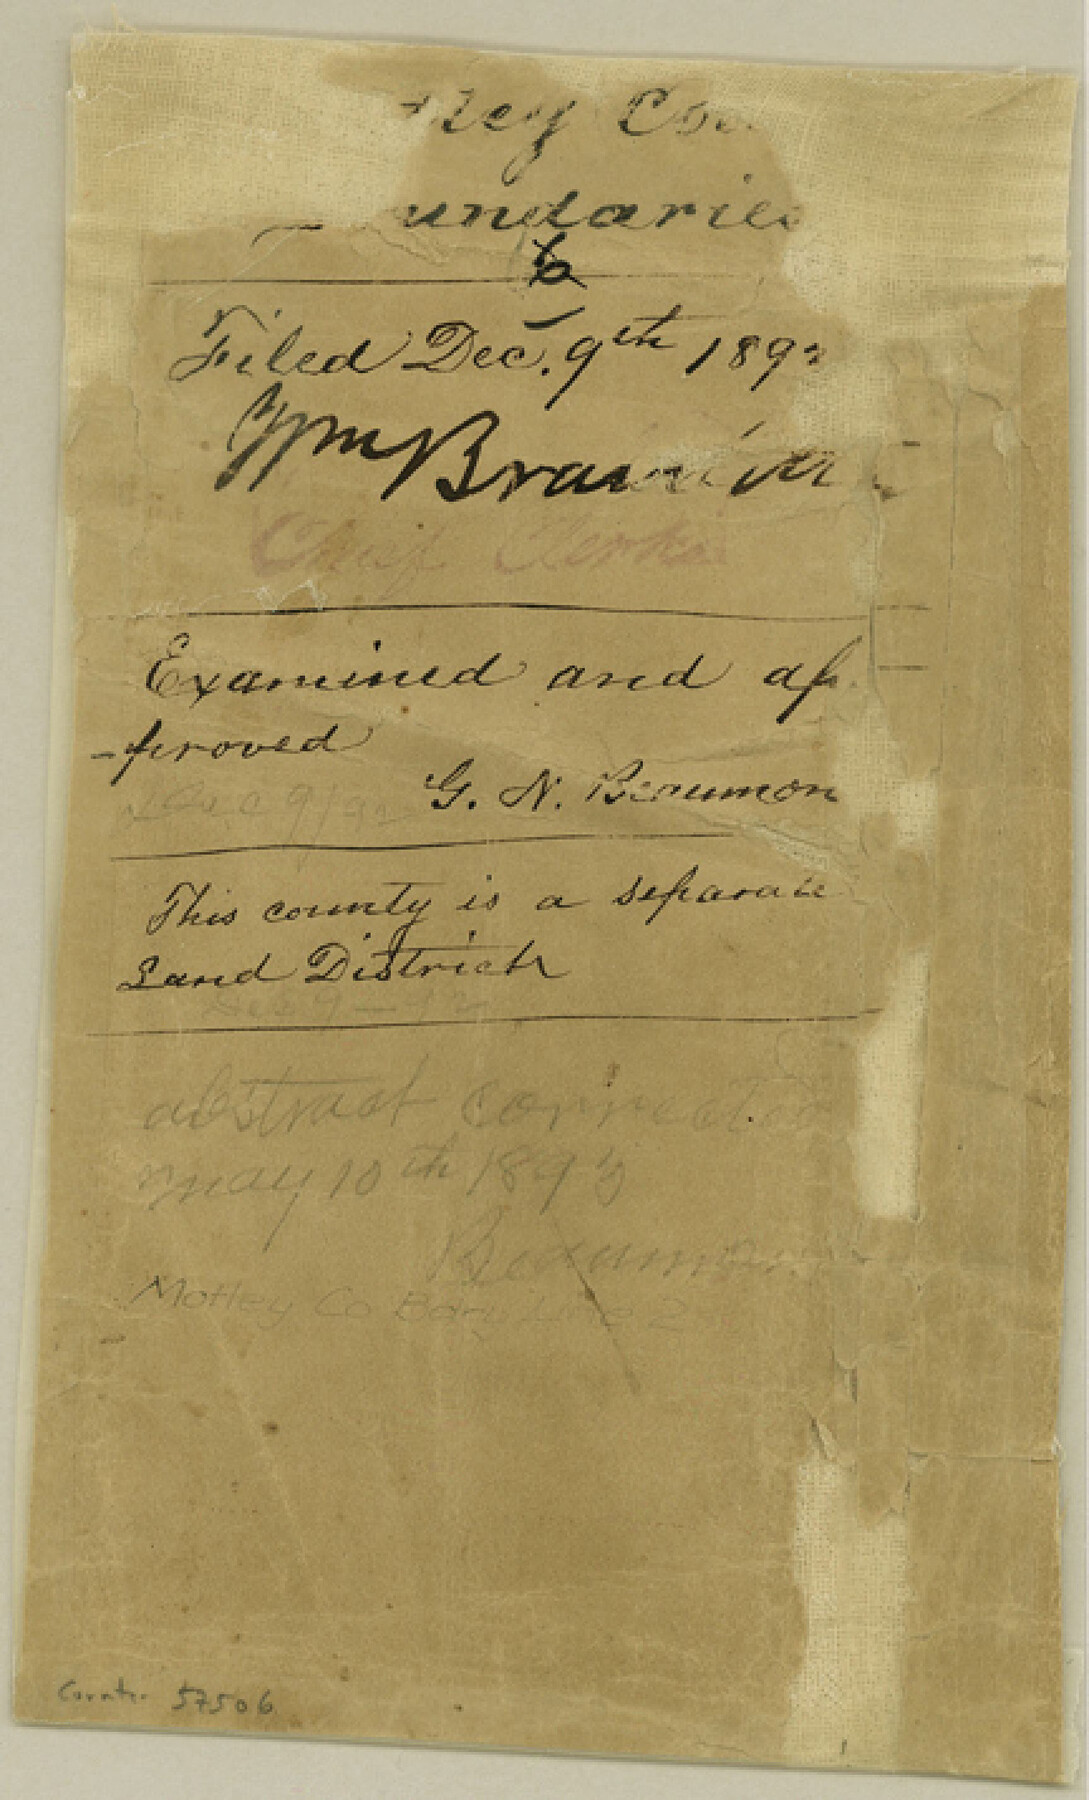 tley Cou
undaries
Filed Dec. 9th 189
Wm
Chief Clerk
Examined and ap
-proved
G. N. Beaumon
Dec 9/92
This county is a separate
Land District
Dec 9-92
abstract corrected
may 10th 1893
Beaumon
Motley Co Bdry Line 2
Counter 57506